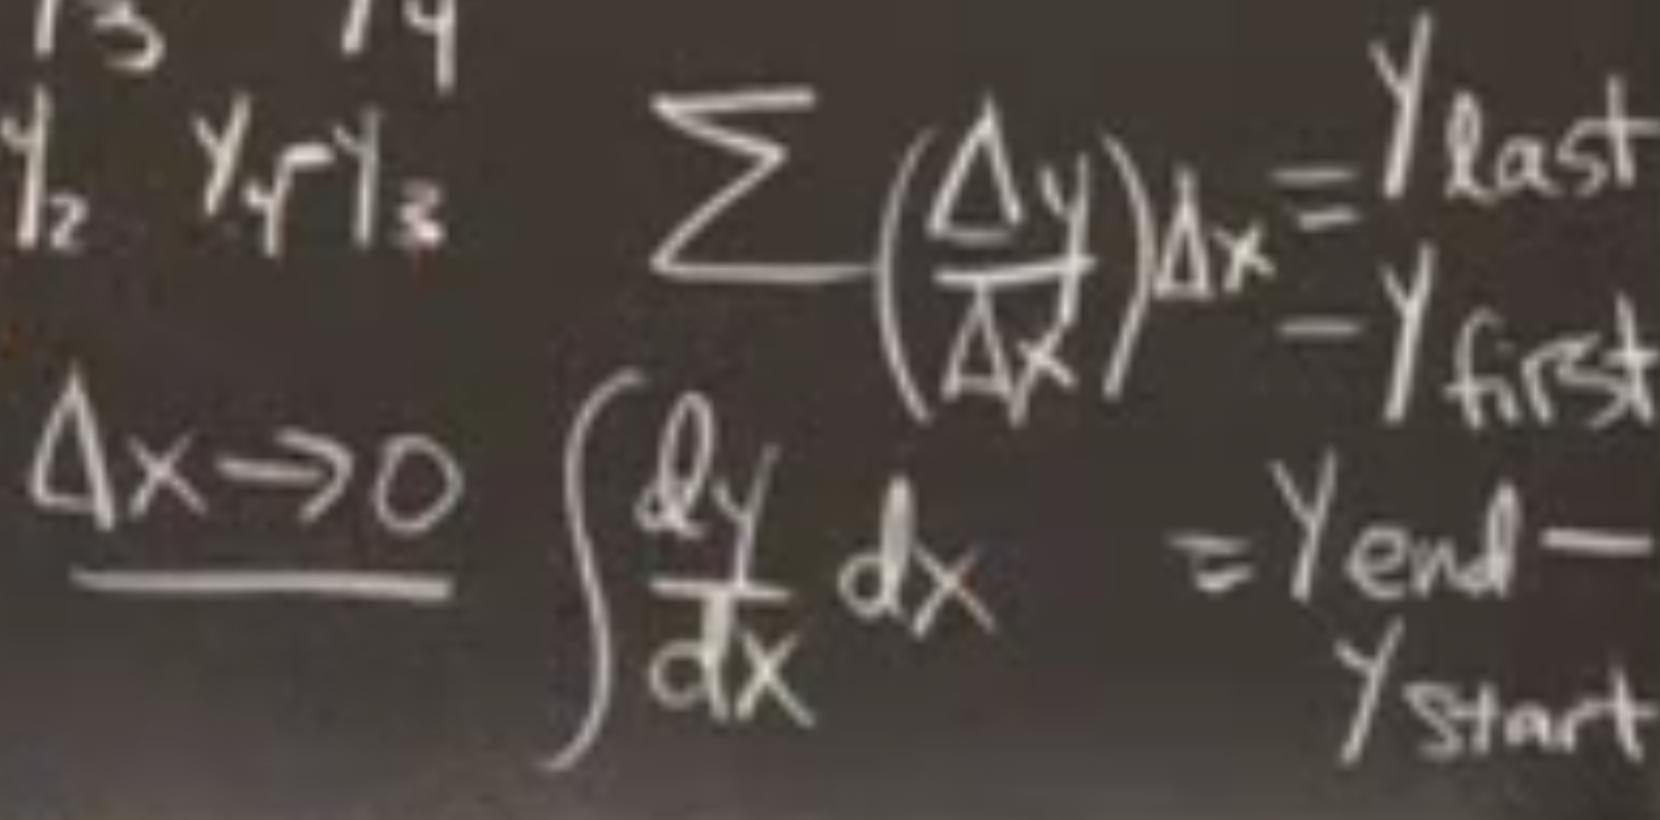 y3 y4
y2 y4-y3 Σ(Δy/Δx)Δx = y last
- y first
Δx→0 ∫ dy/dx dx = y end -
y start